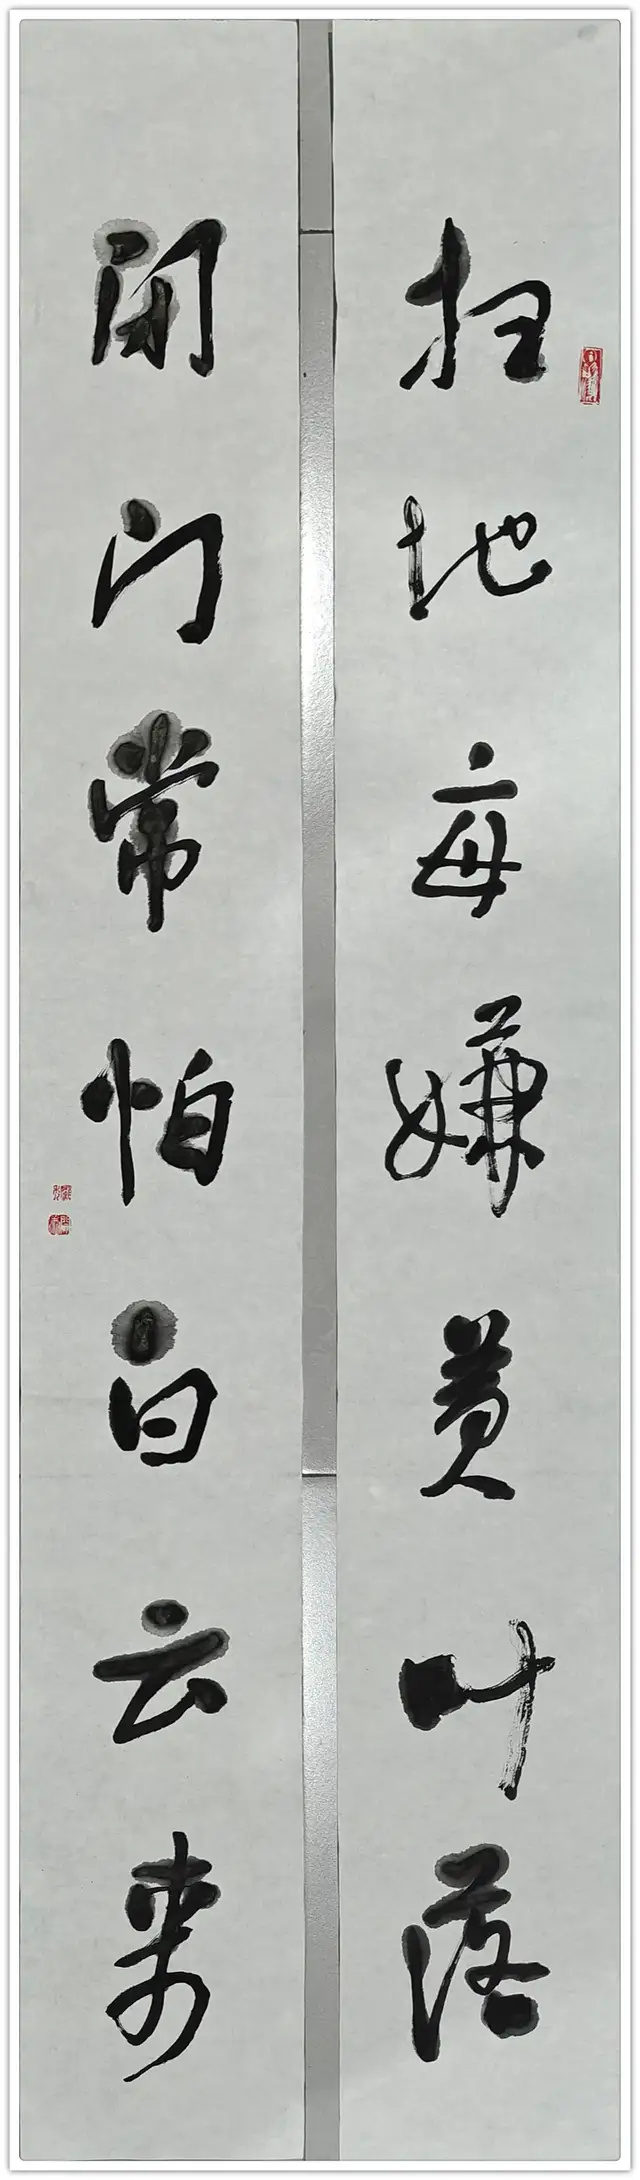 扫地每嫌黄叶落
開门常怕白云来